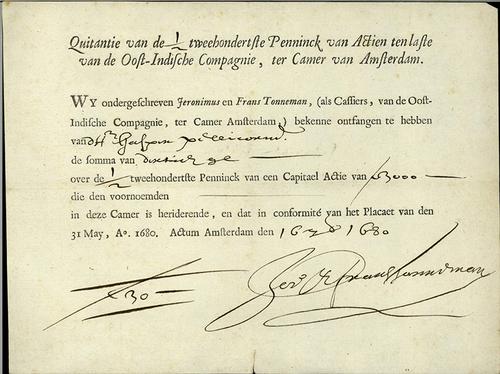 Quitantie van de 1/2 tweehondertste Penninck van Actien ten laste
van de Oost-Indische Compagnie, ter Camer van Amsterdam.
WY ondergeschreven Jeronimus en Frans Tonneman, (als Cassiers, van de Oost-
Indische Compagnie, ter Camer Amsterdam,) bekenne ontfangen te hebben
van
de somma van
over de 1/2 tweehondertste Penninck van een Capitael Actie van 3000
die den voornoemden
in deze Camer is heriderende, en dat in conformité van het Placaet van den
31 May, Ao. 1680. Actum Amsterdam den 1680
30
Frans Tonneman